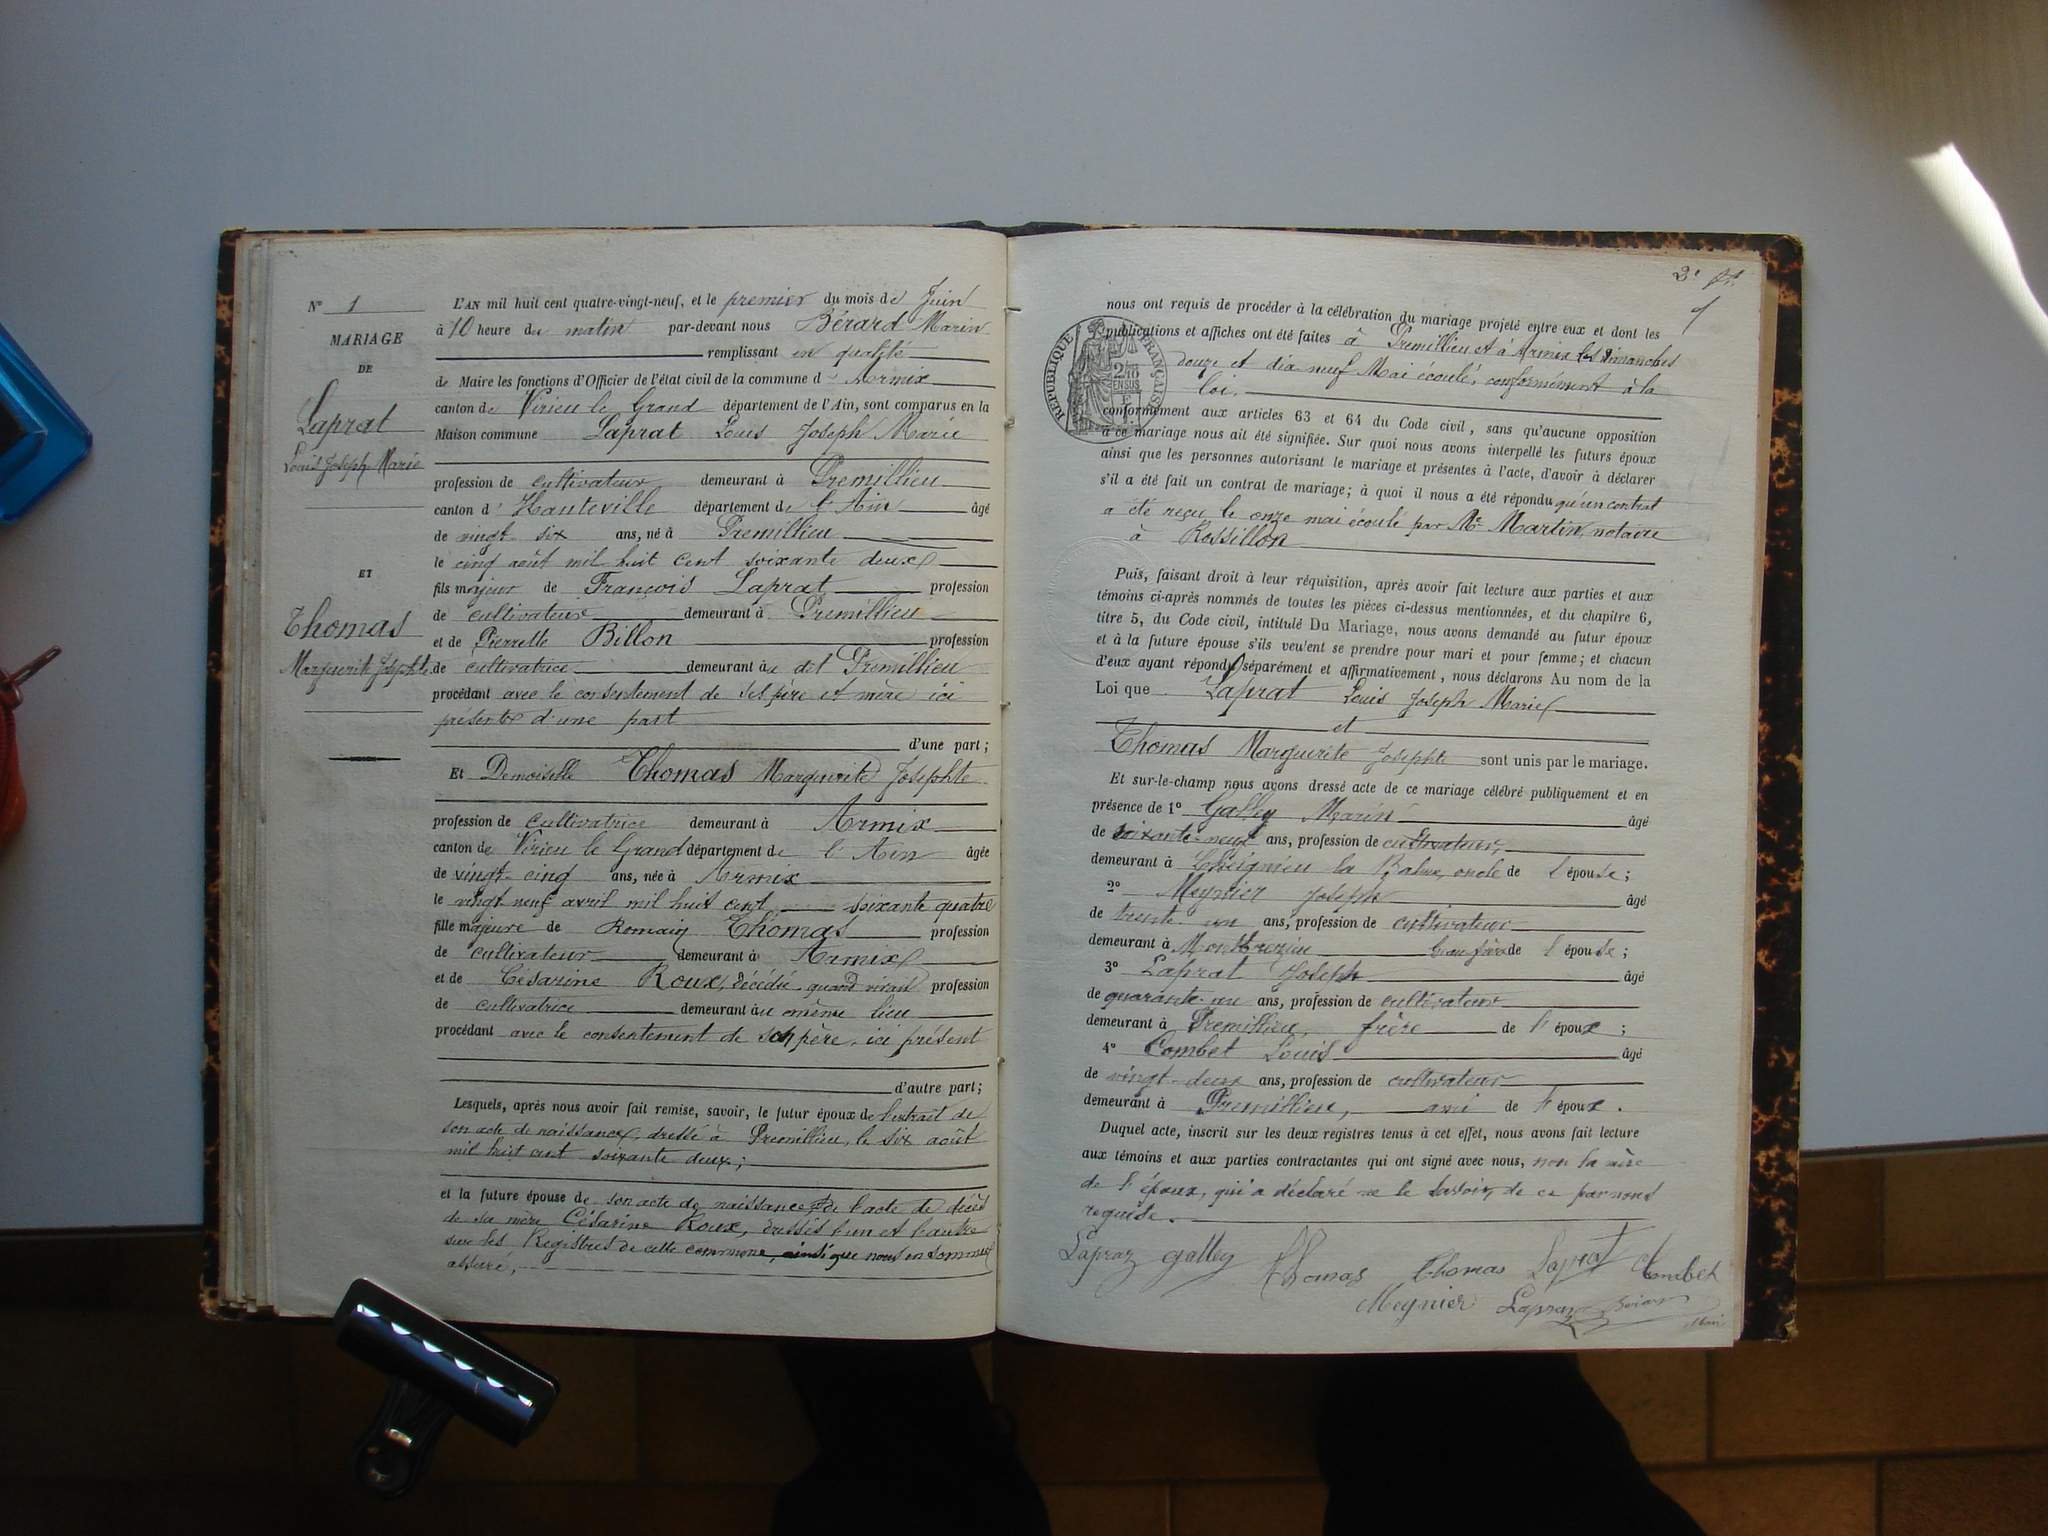 N° 1
MARIAGE
DE
Laprat
Louis Joseph Marie
ET
Thomas
Marguerite Josephte
L'AN mil huit cent quatre-vingt-neuf, et le premier du mois de Juin
à 10 heure du matin par-devant nous Bérard Marin
remplissant en qualité
de Maire les fonctions d'Officier de l'état civil de la commune d' Armix
canton de Virieu le Grand département de l'Ain, sont comparus en la
Maison commune Laprat Louis Joseph Marie
profession de cultivateur demeurant à Premillieu
canton d' Hauteville département de l'Ain âgé
de vingt-six ans, né à Premillieu
le cinq août mil huit cent soixante deux
fils majeur de François Laprat profession
de cultivateur demeurant à Premillieu
et de Pierrette Billon profession
de cultivatrice demeurant au dit Premillieu
procédant avec le consentement de ses père et mère ici
présents d'une part
d'une part;
Et Demoiselle Thomas Marguerite Josephte
profession de cultivatrice demeurant à Armix
canton de Virieu le Grand département de l'Ain âgée
de vingt-cinq ans, née à Armix
le vingt neuf avril mil huit cent soixante quatre
fille majeure de Romain Thomas profession
de cultivateur demeurant à Armix
et de Césarine Roux, décédée quand vivait profession
de cultivatrice demeurant au même lieu
procédant avec le consentement de son père, ici présent
d'autre part;
Lesquels, après nous avoir fait remise, savoir, le futur époux de l'extrait de
son acte de naissance, dressé à Premillieu, le six août
mil huit cent soixante deux;
et la future épouse de son acte de naissance, de l'acte de décès
de sa mère Césarine Roux, dressés l'un et l'autre
sur les Registres de cette commune, ainsi que nous en sommes
assuré,
2e
nous ont requis de procéder à la célébration du mariage projeté entre eux et dont les
publications et affiches ont été faites à Premillieu et à Armix les dimanches
douze et dix neuf Mai écoulé, conformément à la
loi.
RÉPUBLIQUE FRANÇAISE
conformément aux articles 63 et 64 du Code civil, sans qu'aucune opposition
à ce mariage nous ait été signifiée. Sur quoi nous avons interpellé les futurs époux
ainsi que les personnes autorisant le mariage et présentes à l'acte, d'avoir à déclarer
s'il a été fait un contrat de mariage; à quoi il nous a été répondu qu'un contrat
a été reçu le onze mai écoulé par Me Martin, notaire
à Rossillon
Puis, faisant droit à leur réquisition, après avoir fait lecture aux parties et aux
témoins ci-après nommés de toutes les pièces ci-dessus mentionnées, et du chapitre 6,
titre 5, du Code civil, intitulé Du Mariage, nous avons demandé au futur époux
et à la future épouse s'ils veulent se prendre pour mari et pour femme; et chacun
d'eux ayant répondu séparément et affirmativement, nous déclarons Au nom de la
Loi que Laprat Louis Joseph Marie
et
Thomas Marguerite Josephte sont unis par le mariage.
Et sur-le-champ nous avons dressé acte de ce mariage célébré publiquement et en
présence de 1° Galley Marin âgé
de soixante-neuf ans, profession de cultivateur,
demeurant à Cheignieu la Balme, oncle de l'épouse;
2° Meynier Joseph âgé
de trente un ans, profession de cultivateur
demeurant à beau frère de l'épouse;
3° Laprat Joseph âgé
de quarante-un ans, profession de cultivateur
demeurant à Premillieu, frère de l'époux;
4° Combet Louis âgé
de vingt-deux ans, profession de cultivateur
demeurant à Premillieu, ami de l'époux.
Duquel acte, inscrit sur les deux registres tenus à cet effet, nous avons fait lecture
aux témoins et aux parties contractantes qui ont signé avec nous, non la mère
de l'époux, qui a déclaré ne le savoir, de ce par nous
requise.
Lapraz Galley Thomas Thomas Laprat Combet
Meynier Lapraz